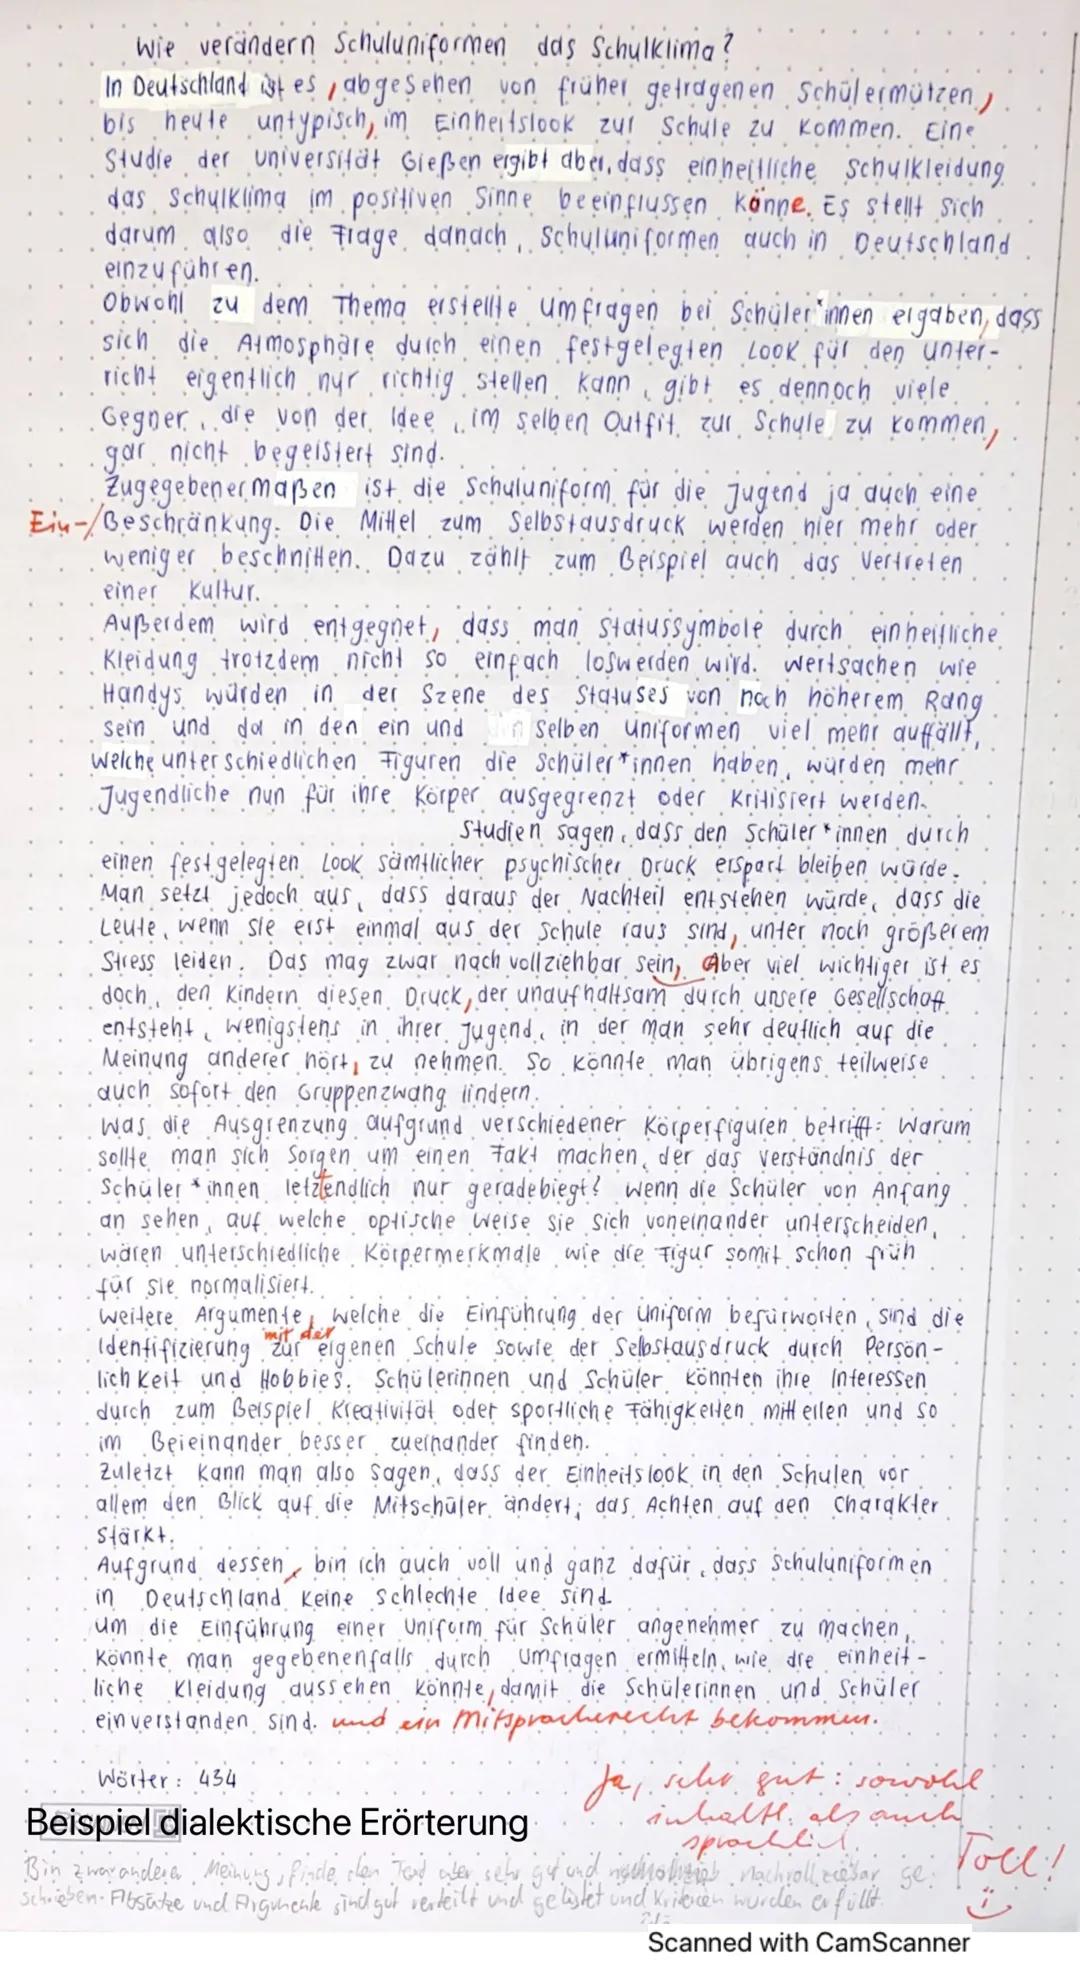 Wie verändern Schuluniformen das Schulklima?
In Deutschland ist es, abgesehen von früher getragenen Schülermützen,
bis heute untypisch, im Einheitslook zur Schule zu kommen. Eine
Studie der Universität Gießen ergibt aber, dass einheitliche Schulkleidung
das Schulklima im positiven Sinne beeinflussen könne. Es stellt sich
darum also die Frage danach, Schuluniformen auch in Deutschland
einzuführen.
Obwohl zu dem Thema erstellte Umfragen bei Schüler*innen ergaben, dass
sich die Atmosphäre durch einen festgelegten Look für den Unter-
richt eigentlich nur richtig stellen kann, gibt es dennoch viele
Gegner, die von der Idee, im selben Outfit zur Schule zu kommen,
gar nicht begeistert sind.
Zugegebenermaßen ist die Schuluniform für die Jugend ja auch eine
Ein-/Beschränkung. Die Mittel zum Selbstausdruck werden hier mehr oder
weniger beschnitten. Dazu zählt zum Beispiel auch das Vertreten
einer Kultur.
Außerdem wird entgegnet, dass man Statussymbole durch einheitliche
Kleidung trotzdem nicht so einfach loswerden wird. Wertsachen wie
Handys würden in der Szene des Statuses von noch höherem Rang
sein und da in den ein und selben Uniformen viel mehr auffällt,
welche unterschiedlichen Figuren die Schüler*innen haben, würden mehr
Jugendliche nun für ihre Körper ausgegrenzt oder kritisiert werden.
Studien sagen, dass den Schüler*innen durch
einen festgelegten Look sämtlicher psychischer Druck erspart bleiben würde.
Man setzt jedoch aus, dass daraus der Nachteil entstehen würde, dass die
Leute, wenn sie erst einmal aus der Schule raus sind, unter noch größerem
Stress leiden. Das mag zwar nachvollziehbar sein, Aber viel wichtiger ist es
doch, den Kindern diesen Druck, der unaufhaltsam durch unsere Gesellschaft
entsteht, wenigstens in ihrer Jugend, in der man sehr deutlich auf die
Meinung anderer hört, zu nehmen. So könnte man übrigens teilweise
auch sofort den Gruppenzwang lindern.
Was die Ausgrenzung aufgrund verschiedener Körperfiguren betrifft: Warum
sollte man sich Sorgen um einen Fakt machen, der das Verständnis der
Schüler*innen letztendlich nur geradebiegt? Wenn die Schüler von Anfang
an sehen, auf welche optische Weise sie sich voneinander unterscheiden,
wären unterschiedliche Körpermerkmale wie die Figur somit schon früh
für sie normalisiert.
Weitere Argumente, welche die Einführung der Uniform befürworten, sind die
mit der
Identifizierung zur eigenen Schule sowie der Selbstausdruck durch Persön-
lichkeit und Hobbies. Schülerinnen und Schüler könnten ihre Interessen
durch zum Beispiel Kreativität oder sportliche Fähigkeiten mitteilen und so
im Beieinander besser zueinander finden.
Zuletzt kann man also sagen, dass der Einheitslook in den Schulen vor
allem den Blick auf die Mitschüler ändert; das Achten auf den Charakter
stärkt.
Aufgrund dessen, bin ich auch voll und ganz dafür, dass Schuluniformen
in Deutschland keine schlechte Idee sind.
Um die Einführung einer Uniform für Schüler angenehmer zu machen,
könnte man gegebenenfalls durch Umfragen ermitteln, wie die einheit-
liche Kleidung aussehen könnte, damit die Schülerinnen und Schüler
einverstanden sind. und ein Mitspracherecht bekommen.
Wörter: 434
Ja, sehr gut: sowohl
inhaltl. als auch
sprachlich
Toll!
Beispiel dialektische Erörterung
Bin zwar anderer Meinung, finde den Text aber sehr gut und nachvollziebar ge-
schrieben. Absätze und Argumente sind gut verteilt und gelistet und Kriterien wurden erfüllt.
Scanned with CamScanner